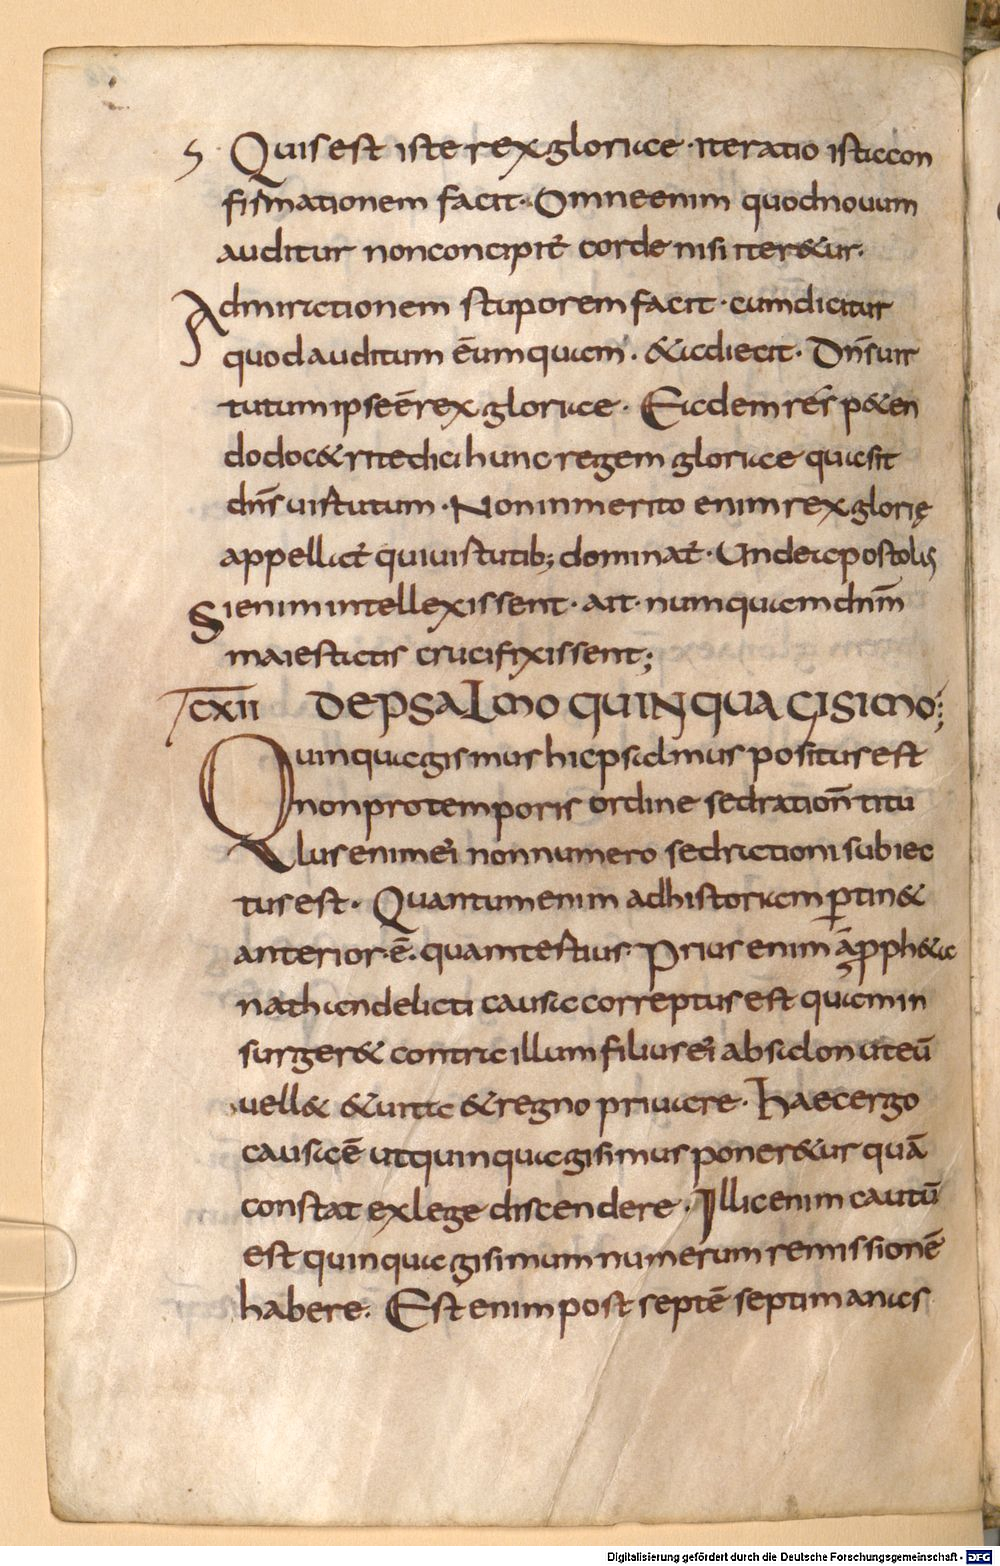 S Quis est iste rex gloriae · iteratio ista con
firmationem facit · Omne enim quod novum
auditur non concipit̄ corde nisi iter&ur.
Admirationem stuporem facit · cum dicitur
quod auditum ēum quam · & adiecit · Dn̄s uir
tutum ipse ē rex gloriae · Eadem rēs p&en
do doc& rite dici hunc regem gloriae quia sit
dn̄s uirtutum · Non inmerito enim rex glorię
appellat̄ qui uirtutib; dominat̄ · Unde apostolus
Si enim intellexissent · ait · numquam dnm̄
maiestatis crucifixissent;
TCXII DE PSALMO QUINQUAGISIMO:;
Quinquagismus hic psalmus positus est
non pro temporis ordine sed ration̄ titu
lus enim ei non numero sed rationi subiec
tus est · Quantum enim ad historiam ꝑtin&
anterior · ē · quam tertius · Prius enim ā ꝓph&a
nathan delicti causa correptus est quam in
surger& contra illum filius ei absalon ut eū
uell& & uita & regno priuare · Haec ergo
causa ē ut quinquagisimus poner&ur quā
constat ex lege discendere · Illic enim cautū
est quinquagisimum numerum remissionē
habere · Est enim post septē septimanas
Digitalisierung gefördert durch die Deutsche Forschungsgemeinschaft - DFG